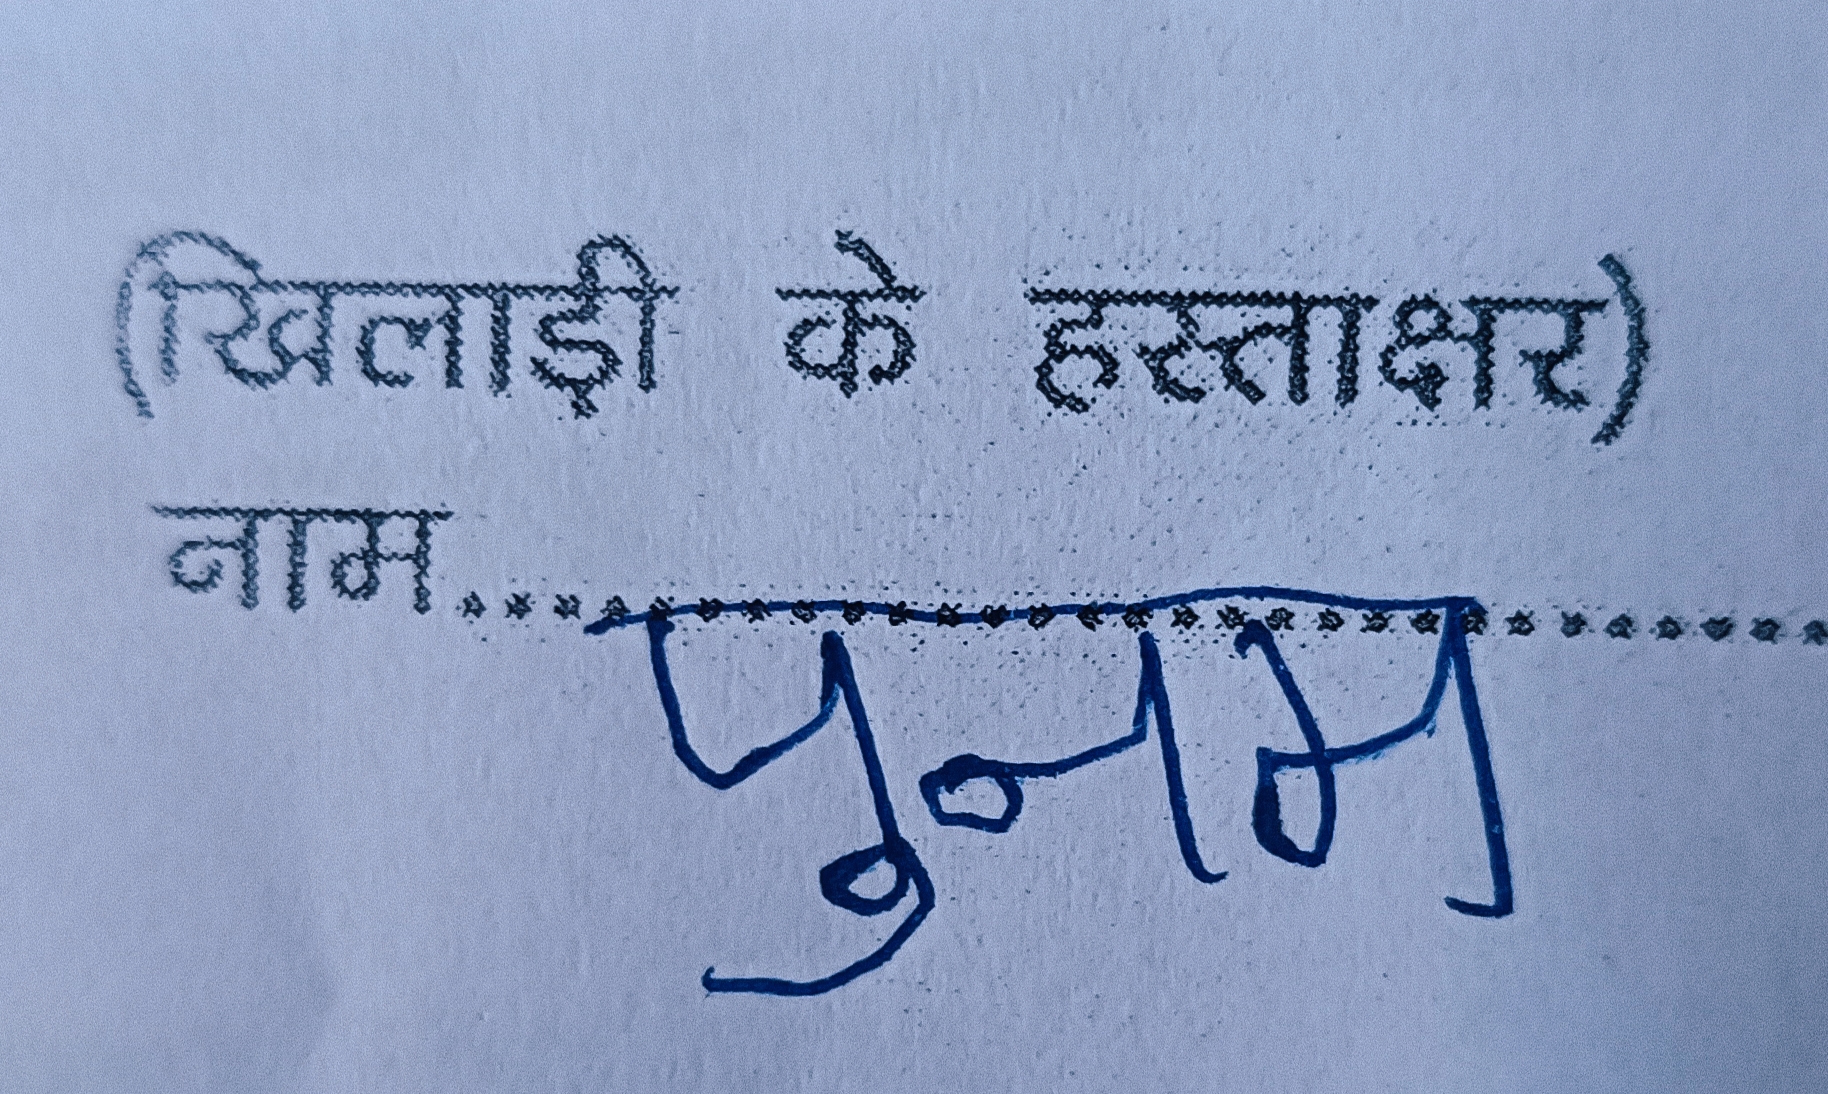 (खिलाड़ी के हस्ताक्षर)
नाम.............................. पुनम